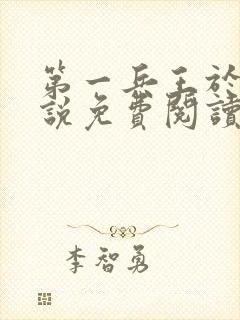 第一兵王於
說免費閱讀
李智勇